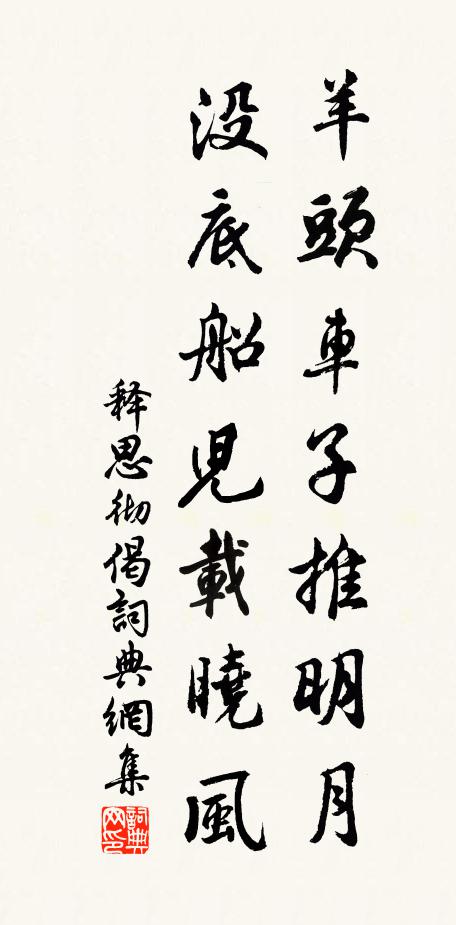 羊頭車子推明月
没底船兒載曉風
释思彻偈詞典網集
詞典网印